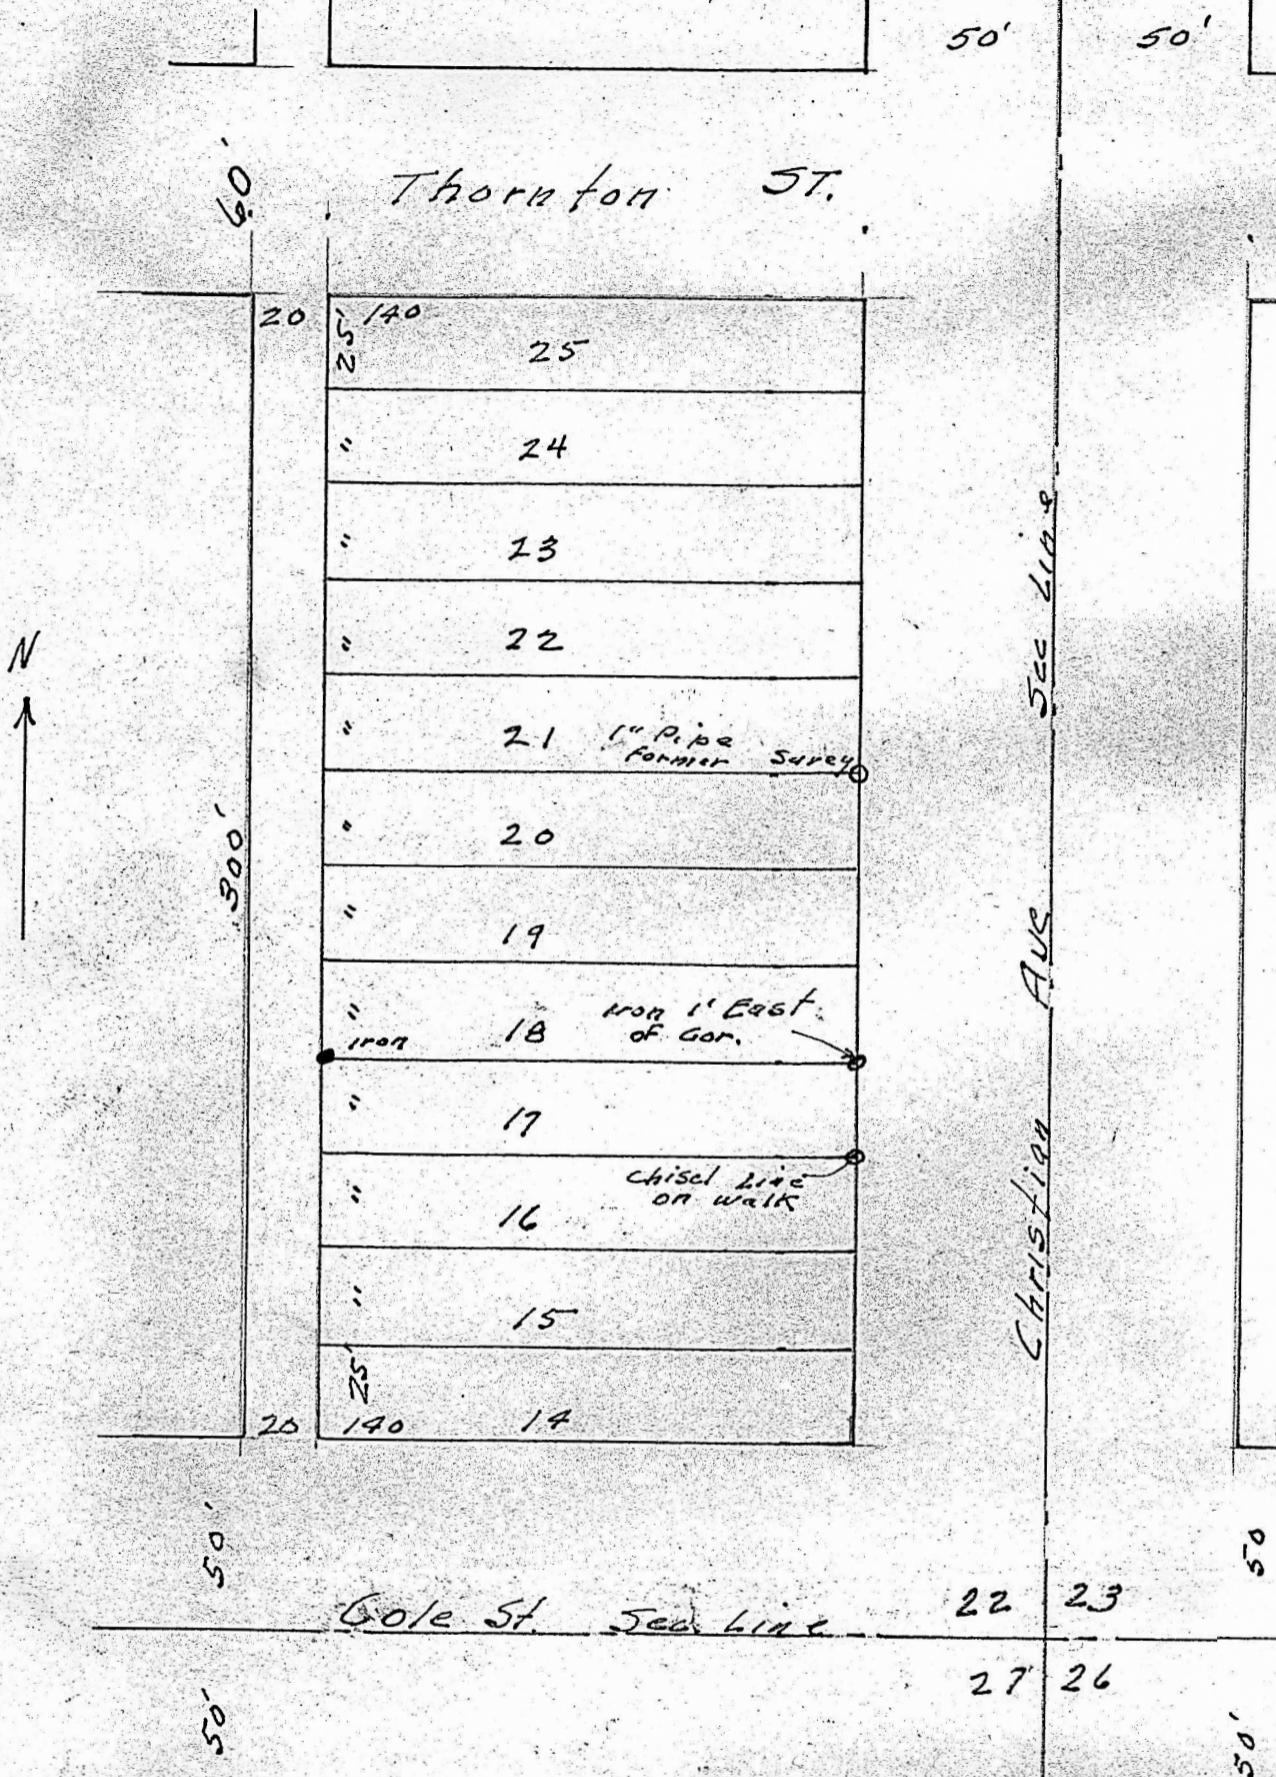 50' 50'
60'
Thornton ST.
20 140
25'
25
" 24
" 23
N
" 22
" 21
1" Pipe
Former Survey
" 20
300'
" 19
" 18
Iron
Iron 1' East
of Cor.
" 17
Chisel Line
on walk
" 16
" 15
25'
20 140 14
Christian Ave Sec Line
50'
50
Cole St. Sec. Line
22 23
27 26
50'
50'